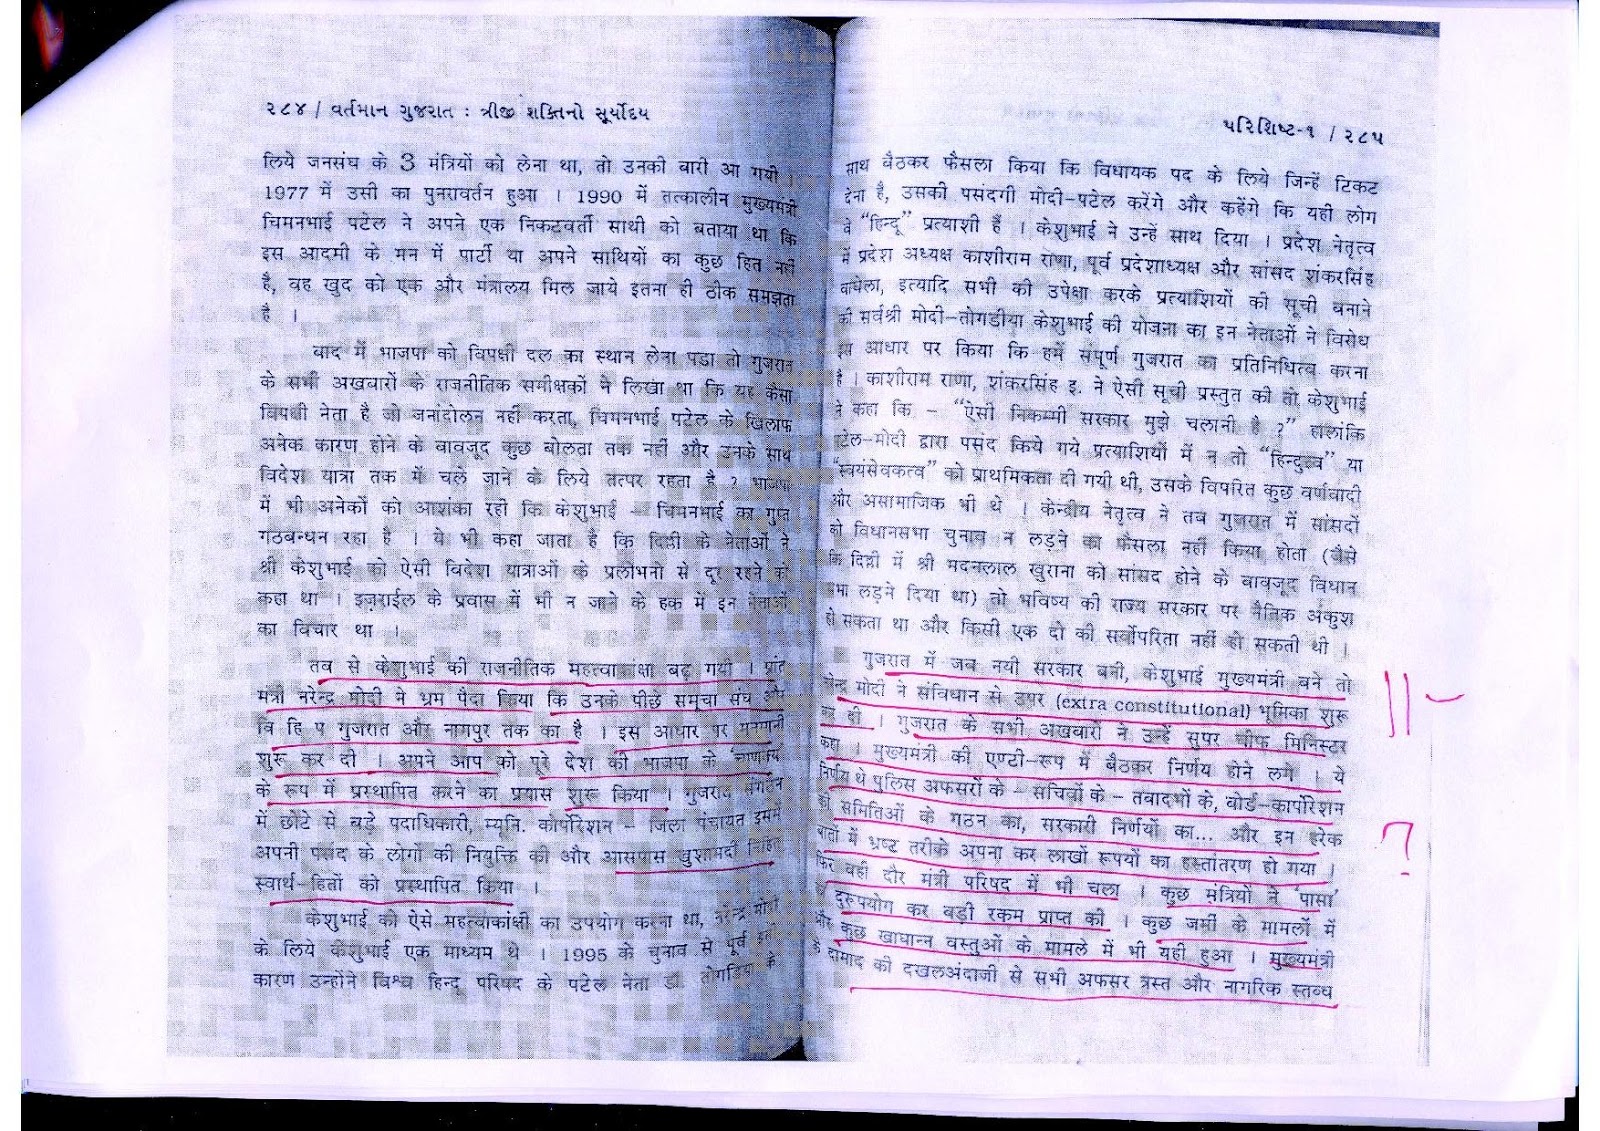 ૨૮૪ / વર્તમાન ગુજરાત : ત્રીજી શક્તિનો સૂર્યોદય
लिये जनसंघ के 3 मंत्रियों को लेना था, तो उनकी बारी आ गयी ।
1977 में उसी का पुनरावर्तन हुआ । 1990 में तत्कालीन मुख्यमंत्री
चिमनभाई पटेल ने अपने एक निकटवर्ती साथी को बताया था कि
इस आदमी के मन में पार्टी या अपने साथियों का कुछ हित नहीं
है, वह खुद को एक और मंत्रालय मिल जाये इतना ही ठीक समझता
है ।
बाद में भाजपा को विपक्षी दल का स्थान लेना पडा तो गुजरात
के सभी अखबारों के राजनीतिक समीक्षकों ने लिखा था कि यह कैसा
विपक्षी नेता है जो जनांदोलन नहीं करता, चिमनभाई पटेल के खिलाफ
अनेक कारण होने के बावजूद कुछ बोलता तक नहीं और उनके साथ
विदेश यात्रा तक में चले जाने के लिये तत्पर रहता है ? भाजपा
में भी अनेकों को आशंका रही कि केशुभाई – चिमनभाई का गुप्त
गठबन्धन रहा है । ये भी कहा जाता है कि दिल्ली के नेताओं ने
श्री केशुभाई को ऐसी विदेश यात्राओं के प्रलोभनो से दूर रहने को
कहा था । इज़राईल के प्रवास में भी न जाने के हक में इन नेताओं
का विचार था ।
तब से केशुभाई की राजनीतिक महत्वाकांक्षा बढ़ गयी । प्रांत
मंत्री नरेन्द्र मोदी ने भ्रम पैदा किया कि उनके पीछे समुचा संघ और
वि हि प गुजरात और नागपुर तक का है । इस आधार पर मनमानी
शुरू कर दी । अपने आप को पूरे देश की भाजपा के
के रूप में प्रस्थापित करने का प्रयास शुरू किया । गुजरात संगठन
में छोटे से बड़े पदाधिकारी, म्युनि. कोर्पोरेशन – जिला पंचायत इसमें
अपनी पसंद के लोगों की नियुक्ति की और आसपास खुशामदी निहित
स्वार्थ-हितों को प्रस्थापित किया ।
केशुभाई को ऐसे महत्वाकांक्षी का उपयोग करना था, नरेन्द्र मोदी
के लिये केशुभाई एक माध्यम थे । 1995 के चुनाव से पूर्व इसी
कारण उन्होंने विश्व हिन्दू परिषद के पटेल नेता डॉ. तोगड़िया के
પરિશિષ્ટ-૧ / ૨૮૫
साथ बैठकर फैसला किया कि विधायक पद के लिये जिन्हें टिकट
देना है, उसकी पसंदगी मोदी-पटेल करेंगे और कहेंगे कि यही लोग
वे “हिन्दू” प्रत्याशी हैं । केशुभाई ने उन्हें साथ दिया । प्रदेश नेतृत्व
में प्रदेश अध्यक्ष काशीराम राणा, पूर्व प्रदेशाध्यक्ष और सांसद शंकरसिंह
वाघेला, इत्यादि सभी की उपेक्षा करके प्रत्याशियों की सूची बनाने
की सर्वश्री मोदी-तोगडीया केशुभाई की योजना का इन नेताओं ने विरोध
इस आधार पर किया कि हमें संपूर्ण गुजरात का प्रतिनिधित्व करना
है । काशीराम राणा, शंकरसिंह इ. ने ऐसी सूची प्रस्तुत की तो केशुभाई
ने कहा कि – “ऐसी निकम्मी सरकार मुझे चलानी है ?” हालांकि
पटेल-मोदी द्वारा पसंद किये गये प्रत्याशियों में न तो “हिन्दुत्व” या
“स्वयंसेवकत्व” को प्राथमिकता दी गयी थी, उसके विपरित कुछ वर्णवादी
और असामाजिक भी थे । केन्दीय नेतृत्व ने तब गुजरात में सांसदों
को विधानसभा चुनाव न लड़ने का फैसला नहीं किया होता (वैसे
कि दिल्ली में श्री मदनलाल खुराना को सांसद होने के बावजूद विधान
सभा लड़ने दिया था) तो भविष्य की राज्य सरकार पर नैतिक अंकुश
हो सकता था और किसी एक दो की सर्वोपरिता नहीं हो सकती थी ।
गुजरात में जब नयी सरकार बनी, केशुभाई मुख्यमंत्री बने तो
नरेन्द्र मोदी ने संविधान से उपर (extra constitutional) भूमिका शुरू
कर दी । गुजरात के सभी अखबारों ने उन्हें सुपर चीफ मिनिस्टर
कहा । मुख्यमंत्री की एण्टी-रूप में बैठकर निर्णय होने लगे । ये
निर्णय थे पुलिस अफसरों के – सचिवों के – तबादभों के, बोर्ड-कार्पोरेशन
की समितिओं के गठन का, सरकारी निर्णयों का... और इन हरेक
बातों में भ्रष्ट तरीके अपना कर लाखों रूपयों का हस्तांतरण हो गया ।
फिर वही दौर मंत्री परिषद में भी चला । कुछ मंत्रियों ने ‘पासा’
दुरूपयोग कर बड़ी रकम प्राप्त की । कुछ जमीं के मामलों में
और कुछ खाधान्न वस्तुओं के मामले में भी यही हुआ । मुख्यमंत्री
के दामाद की दखलअंदाजी से सभी अफसर त्रस्त और नागरिक स्तब्ध
?